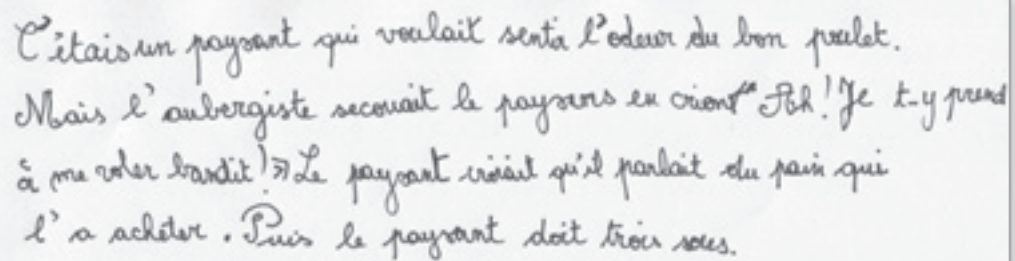 C'étais un paysant qui voulait senta l'odeur du bon poulet.
Mais l'aubergiste secouait le paysans en criont "Ah! Je t-y prend
à me voler bandit!» Le paysant croiait qu'il parlait du pain qui
l'a achéter. Puis le paysant doit trois sous.